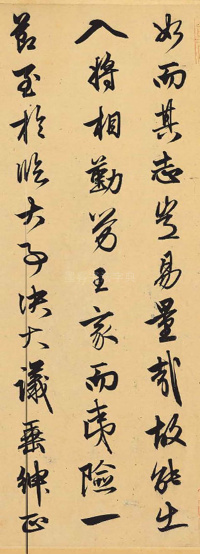 如而其志岂易量哉故能出
入将相勤劳王家而夷险一
节至于临大事决大议垂绅正